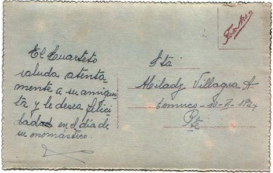 El Cuartito
saluda atenta-
mente a su amigui-
ta y le desea felici-
dades en el día de
su onomástico
Srta
Milady Villagra A
Temuco
Pte